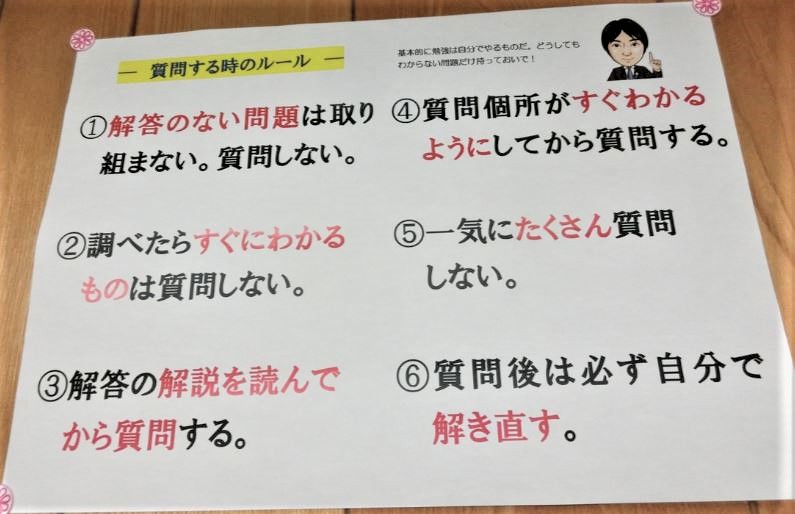 ― 質問する時のルール ―
基本的に勉強は自分でやるものだ。どうしても
わからない問題だけ持っておいで！
①解答のない問題は取り
組まない。質問しない。
②調べたらすぐにわかる
ものは質問しない。
③解答の解説を読んで
から質問する。
④質問個所がすぐわかる
ようにしてから質問する。
⑤一気にたくさん質問
しない。
⑥質問後は必ず自分で
解き直す。